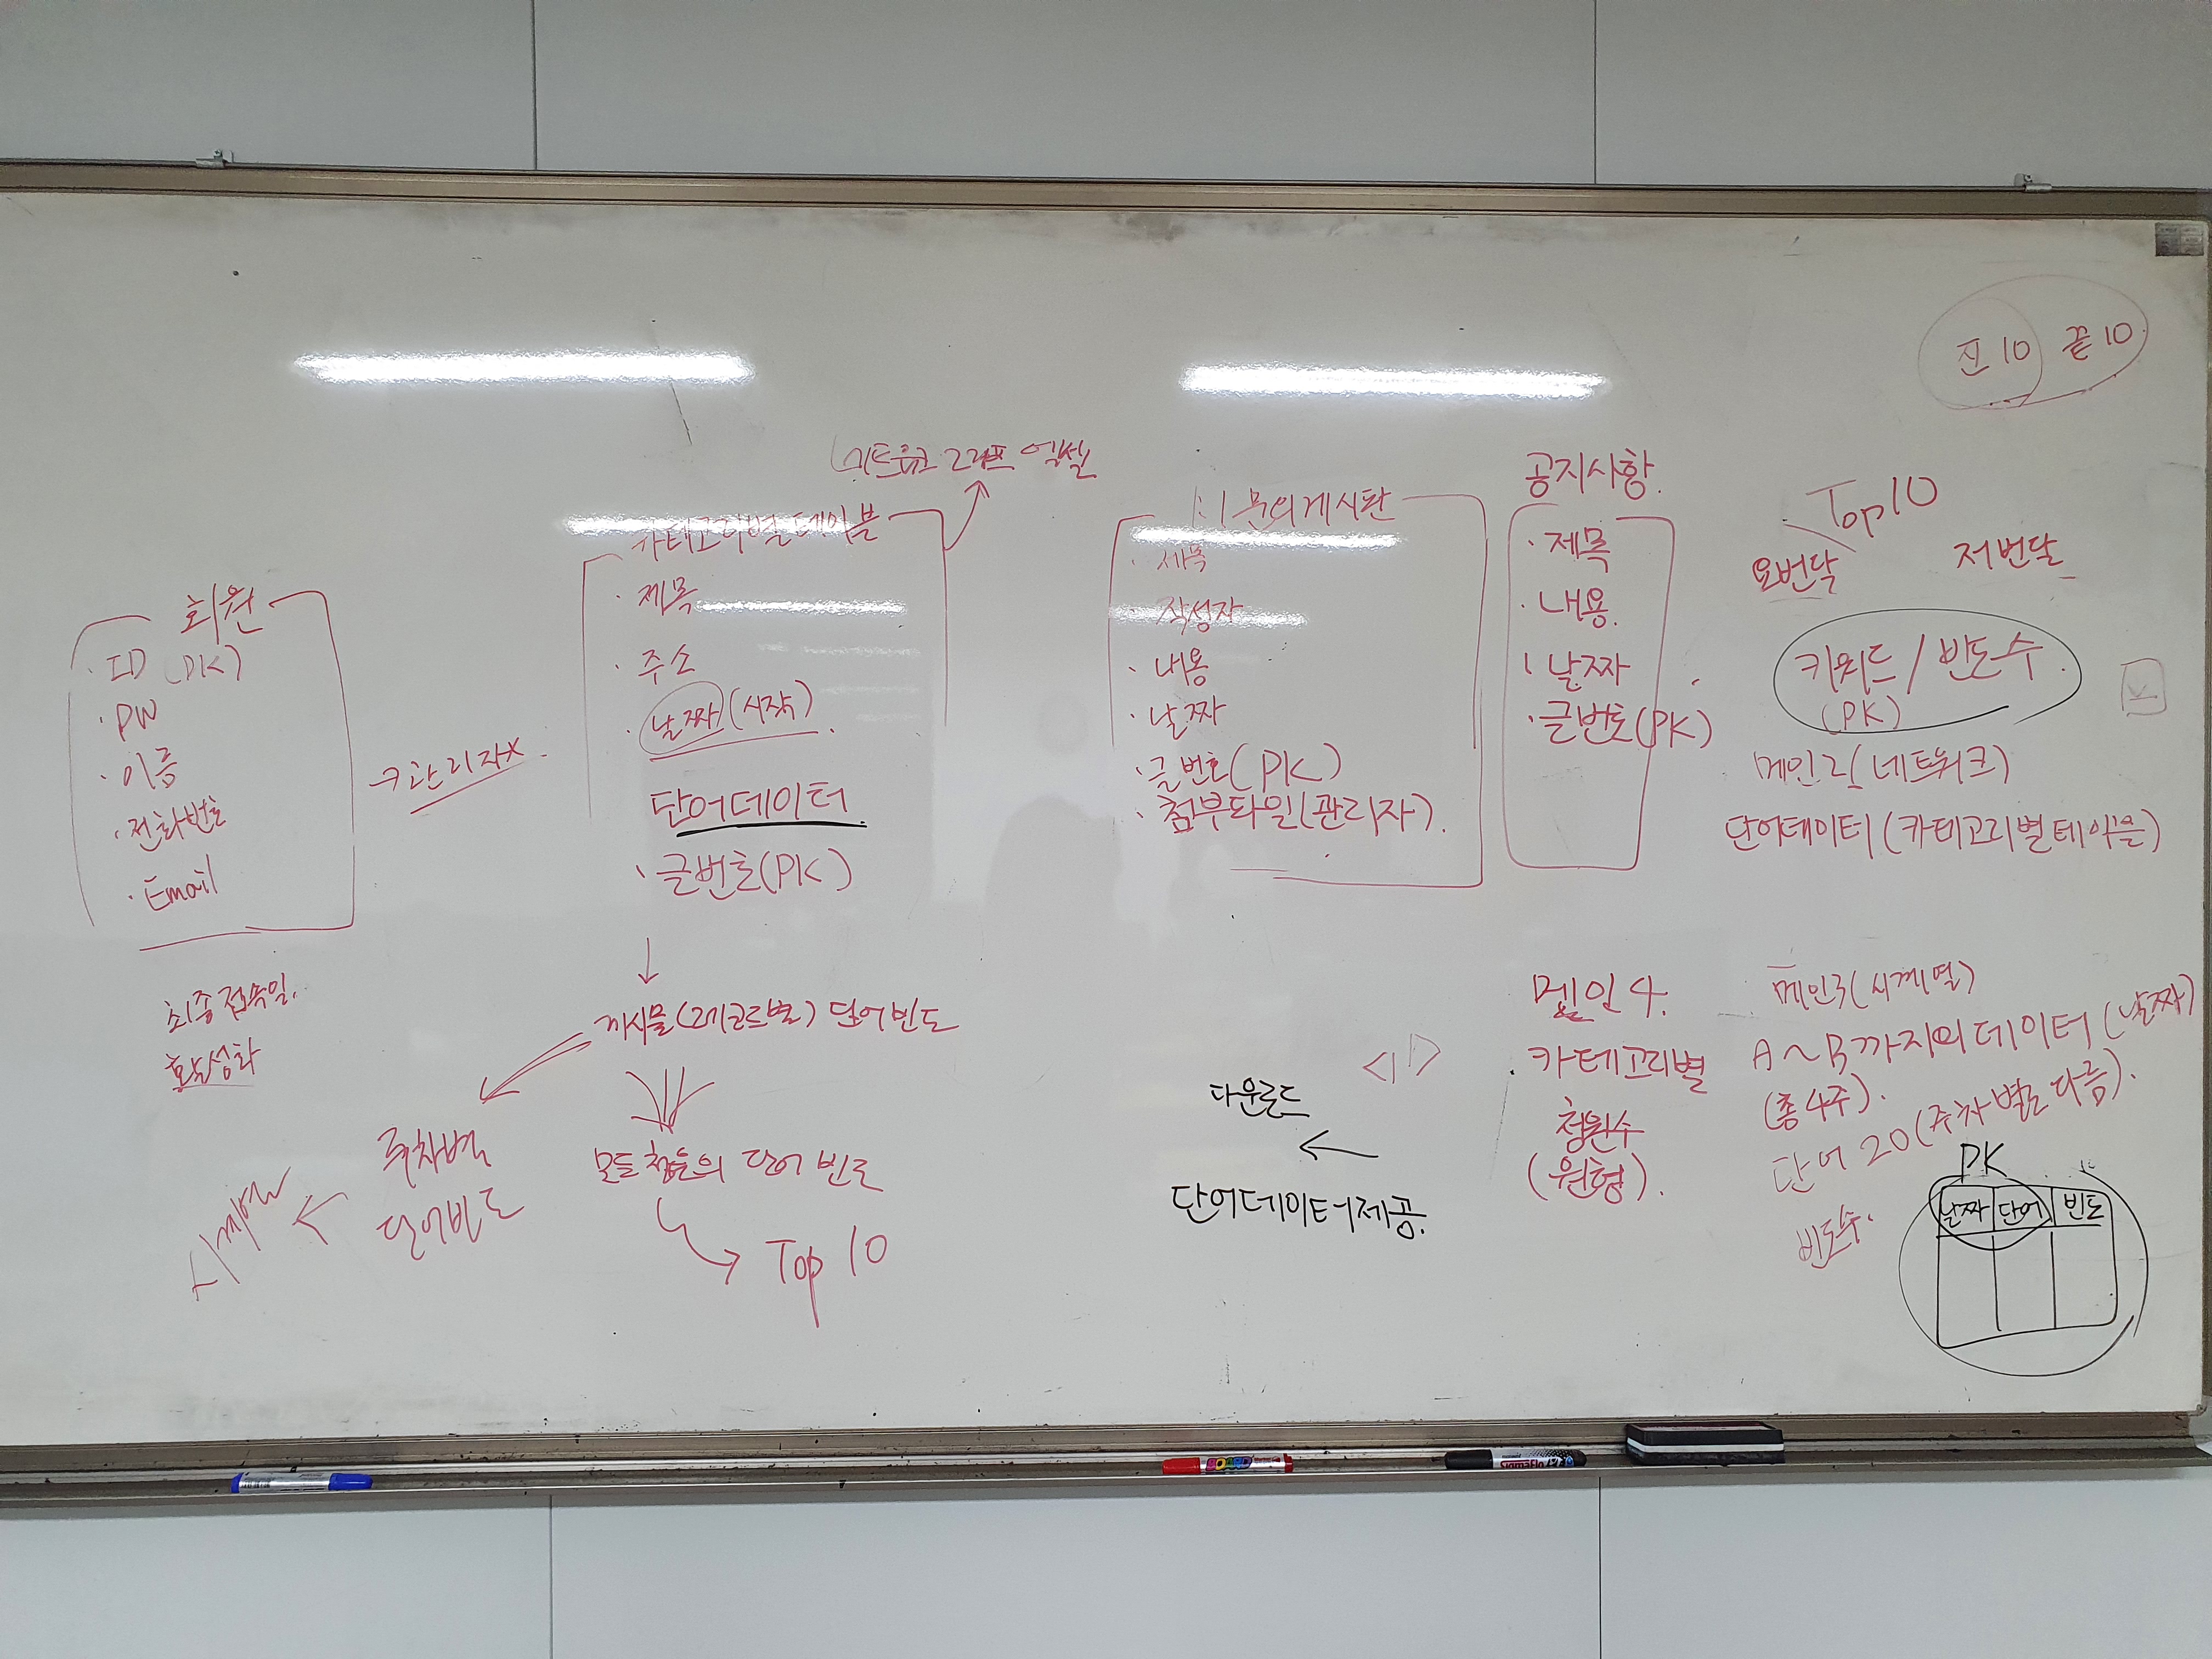 회원
· ID (PK)
· PW
· 이름
· 전화번호
· Email
최종접속일.
활성화
→ 관리자X
네트워크 그래프 엑셀
카테고리별 테이블
· 제목
· 주소
· 날짜 (시작)
단어데이터
· 글번호(PK)
↓
게시물(레코드별) 단어빈도
주차별
단어빈도
←
시계열
모든 청원의 단어 빈도
→ Top 10
1:1 문의게시판
· 제목
· 작성자
· 내용
· 날짜
· 글번호(PK)
· 첨부파일(관리자).
다운로드
←
단어데이터제공.
공지사항.
· 제목
· 내용.
· 날짜
· 글번호(PK)
메인 4.
· 카테고리별
청원수
(원형).
끝 10
Top 10
요번달
저번달
키워드 / 빈도수.
(PK)
메인2(네트워크)
단어데이터(카테고리별테이블)
메인3(시계열)
A~B까지의 데이터(날짜)
(총4주).
단어 20(주차별로 다름).
빈도수.
PK
날짜 단어 빈도